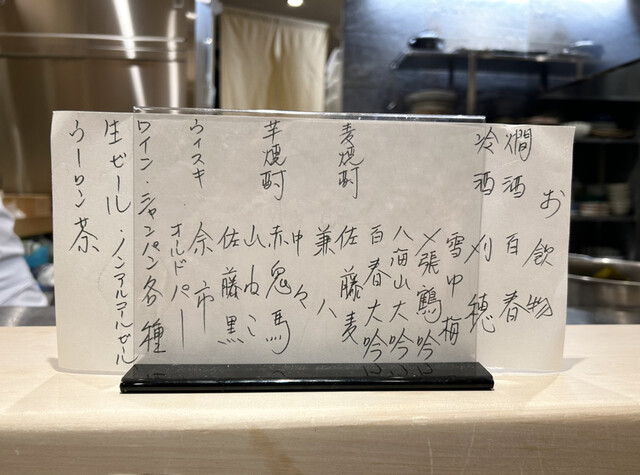 お飲物
燗酒 百春
冷酒 刈穂
雪中梅
〆張鶴 吟
八海山 大吟
百春 大吟
麦焼酎 佐藤麦
兼八
中々
芋焼酎 赤鬼馬
山ねこ
佐藤黒
ウィスキ 余市
オルドパー
ワイン・シャンパン各種
生ビール・ノンアルアルビール
ウーロン茶